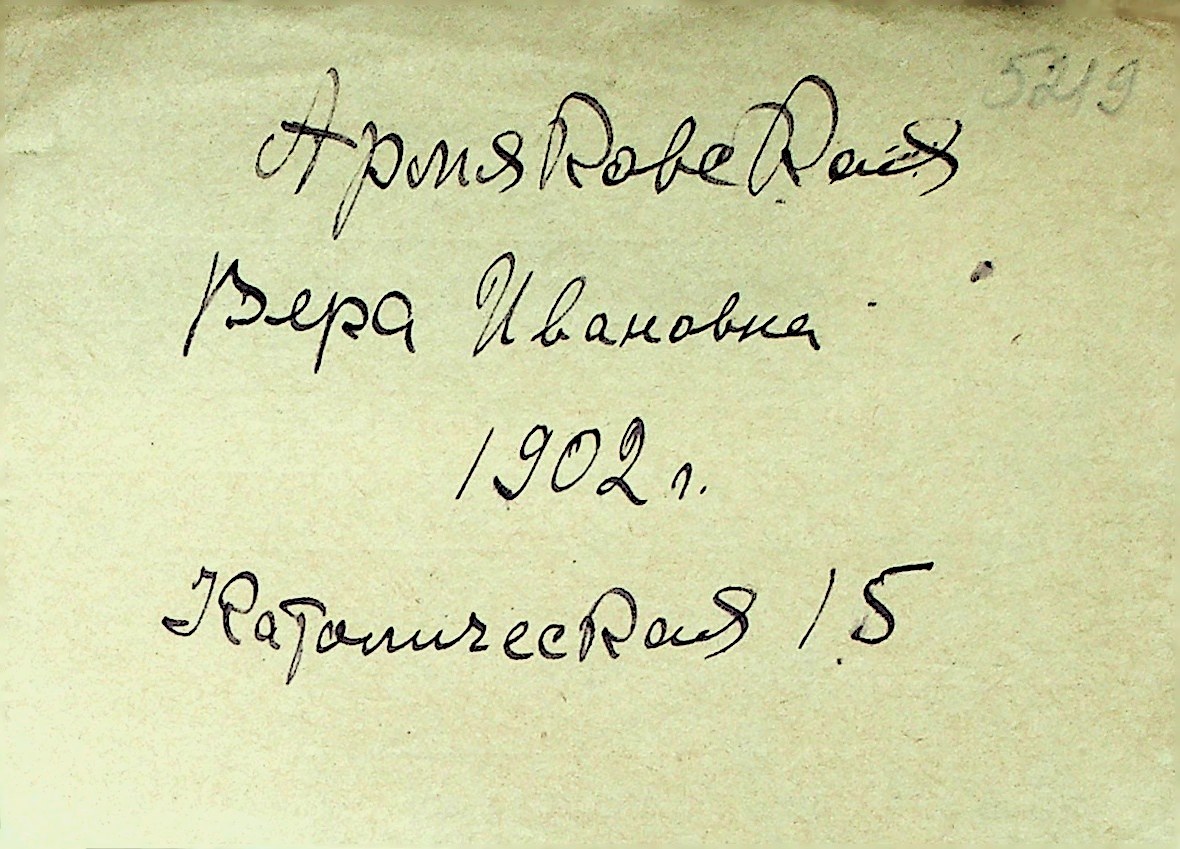 5219
Армяковская
Вера Ивановна
1902 г.
Католическая 15